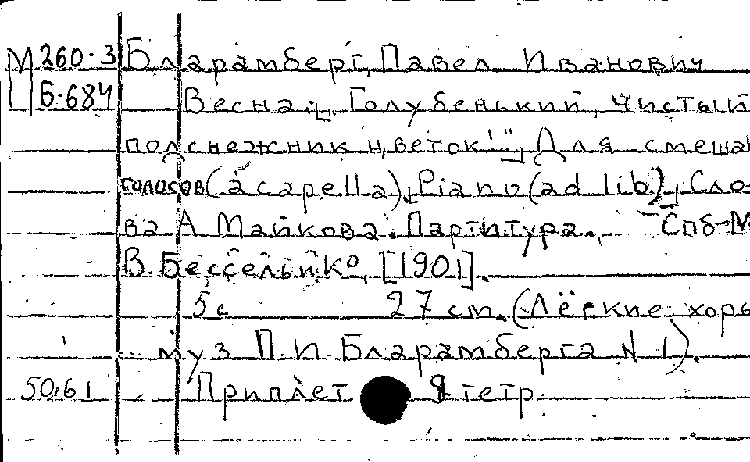 М 260-3 Бларамберг, Павел Иванович
Б-684 Весна. „Голубенький, чистый
подснежник цветок". Для смешан
голосов (a capella), Piano (ad lib.). Сло-
ва А Майкова. Партитура. Спб-М
В. Бессель и Ко [1901].
5с 27 см. (Лёгкие хоры
муз П. И. Бларамберга N 1).
50.61 Приплет 9 тетр.